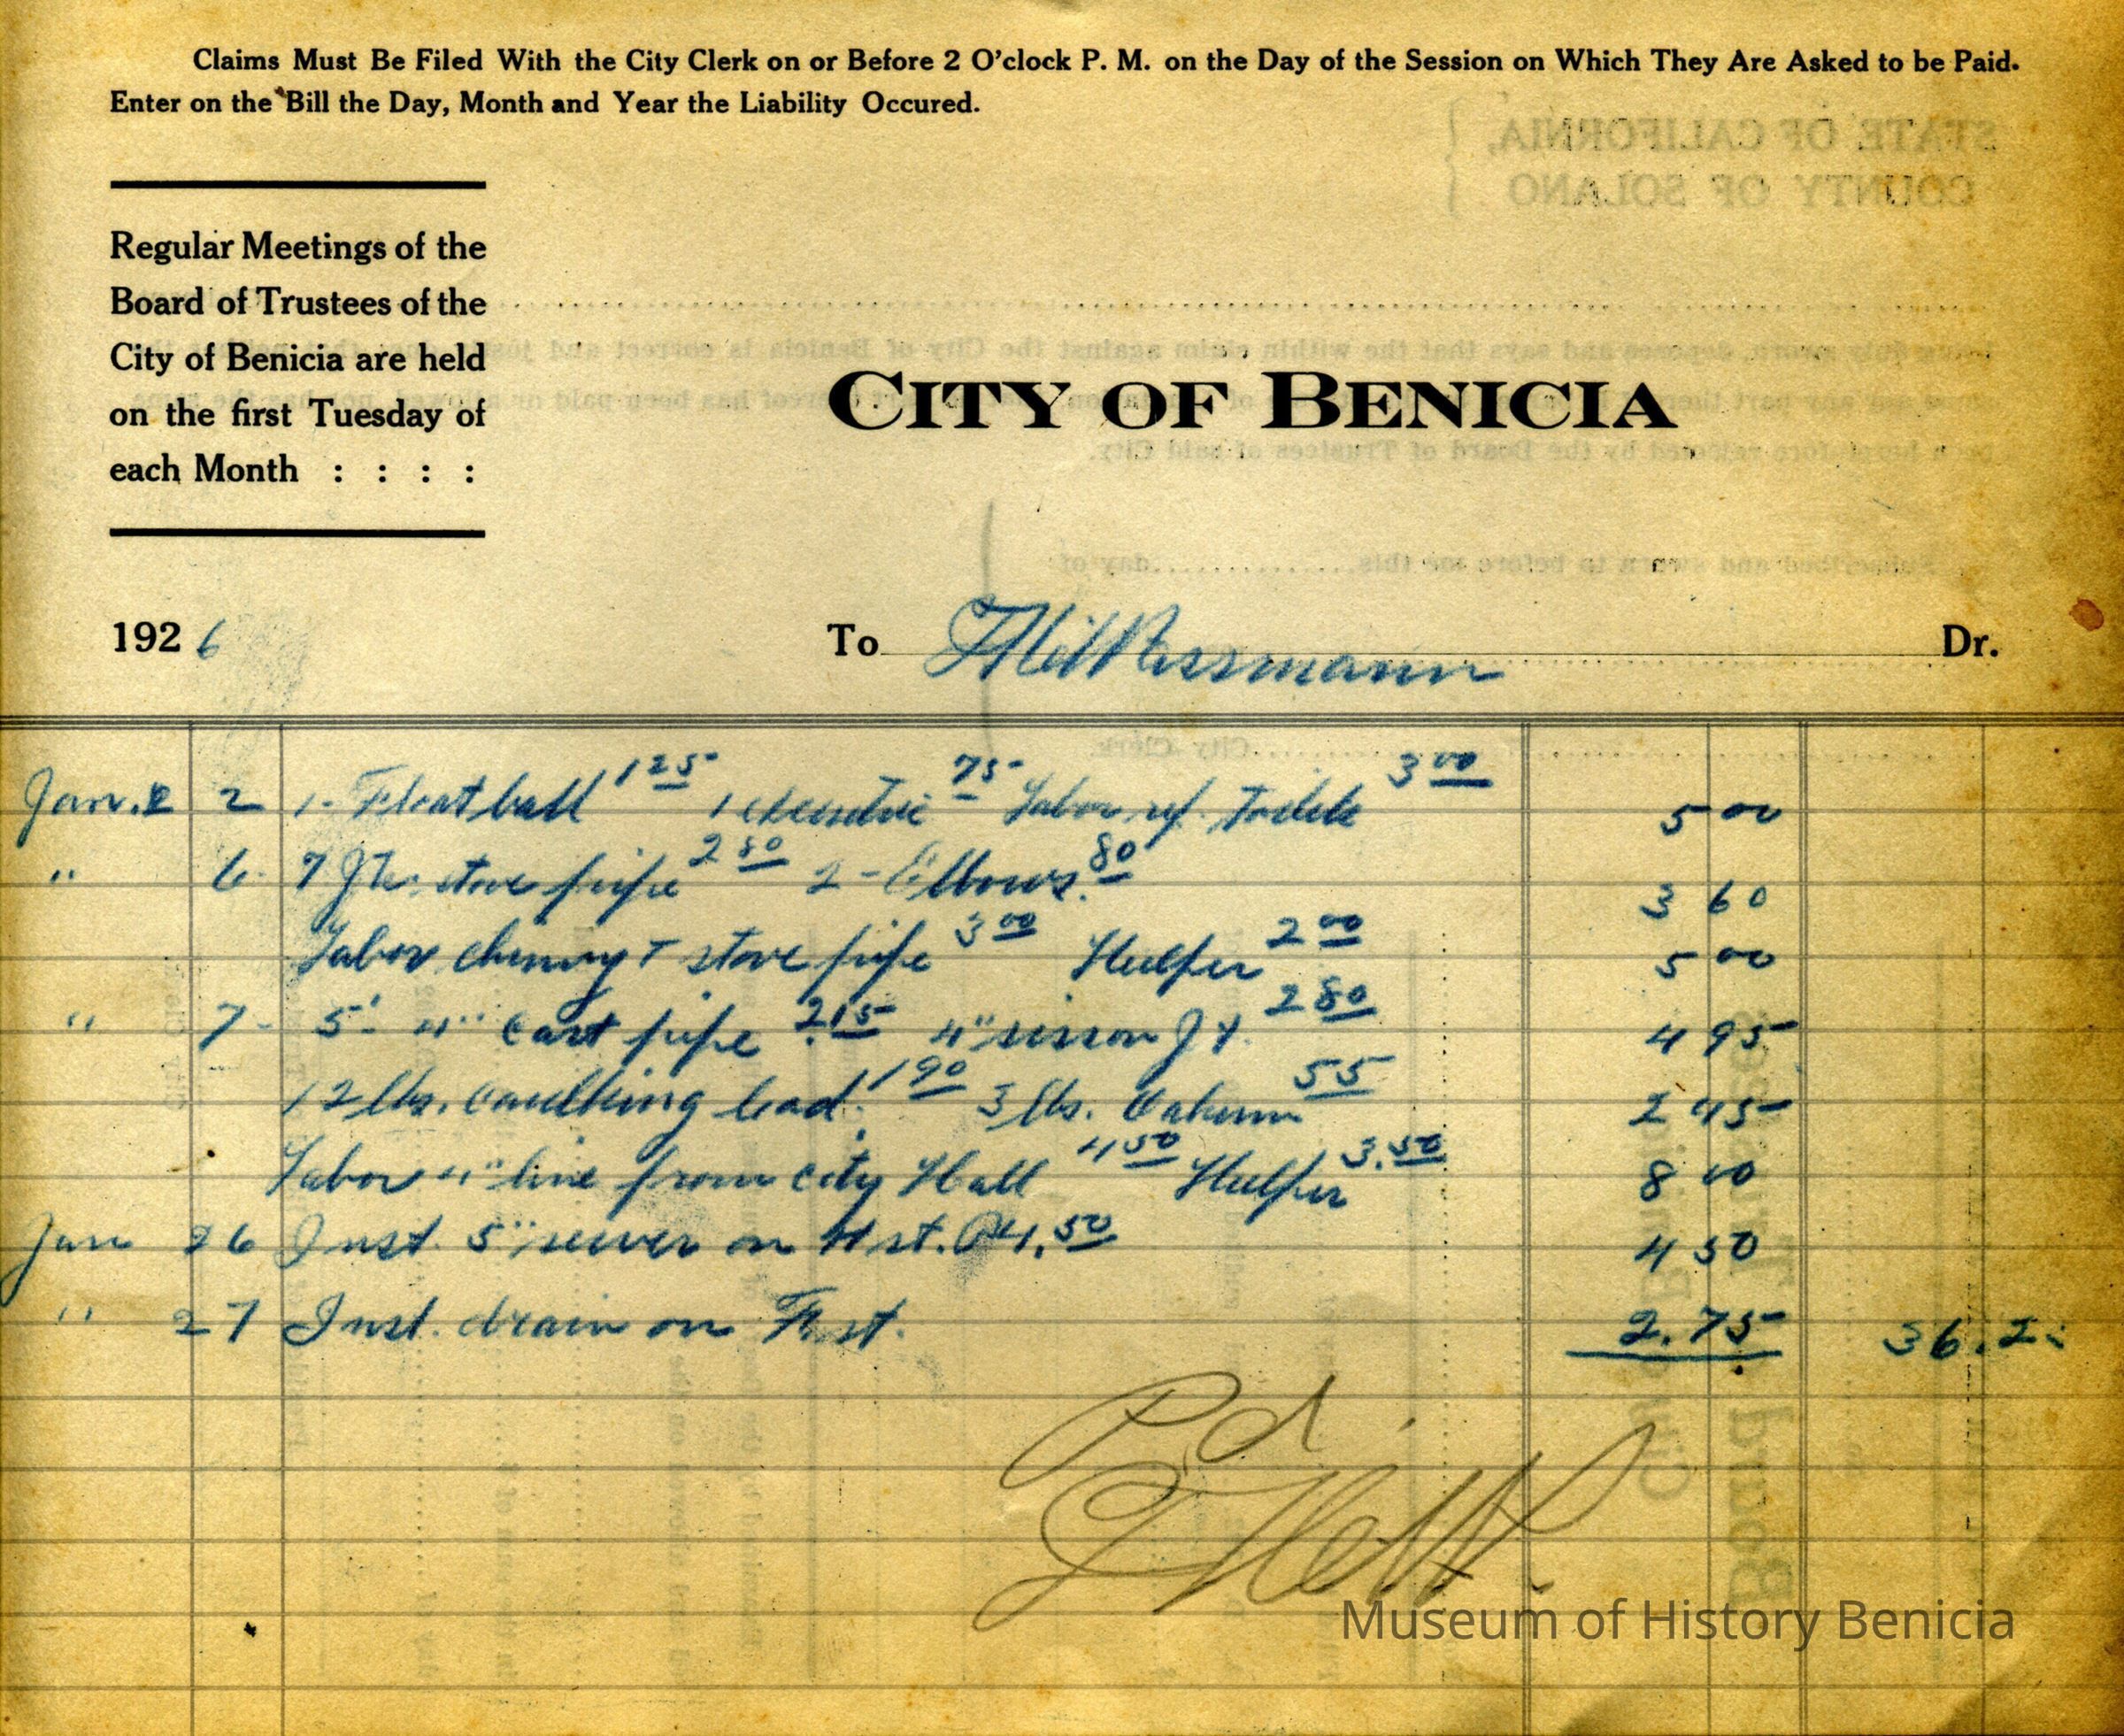 Claims Must Be Filed With the City Clerk on or Before 2 O'clock P. M. on the Day of the Session on Which They Are Asked to be Paid.
Enter on the Bill the Day, Month and Year the Liability Occured.
STATE OF CALIFORNIA,
COUNTY OF SOLANO
Regular Meetings of the
Board of Trustees of the
City of Benicia are held
on the first Tuesday of
each Month : : : :
CITY OF BENICIA
192 6
To Dr.
Jan. 2 1- Float ball 1 25 1 75 Labor 3 00 5 00
" 6 7 stove pipe 2 80 2 - Elbows. 80 3 60
Labor stove pipe 3 00 Helper 2 00 5 00
" 7- 5' 4" cast pipe 2.15 4" 2 80 4 95
12 lbs. caulking lead. 1 90 3 lbs. Oakum 55 2 45
Labor 4" line from city Hall 4 50 Helper 3.50 8 00
Jan 26 Inst. 5" sewer on H st. 4.50 4 50
" 27 Inst. drain on st. 2.75 36.2
Pd
Museum of History Benicia